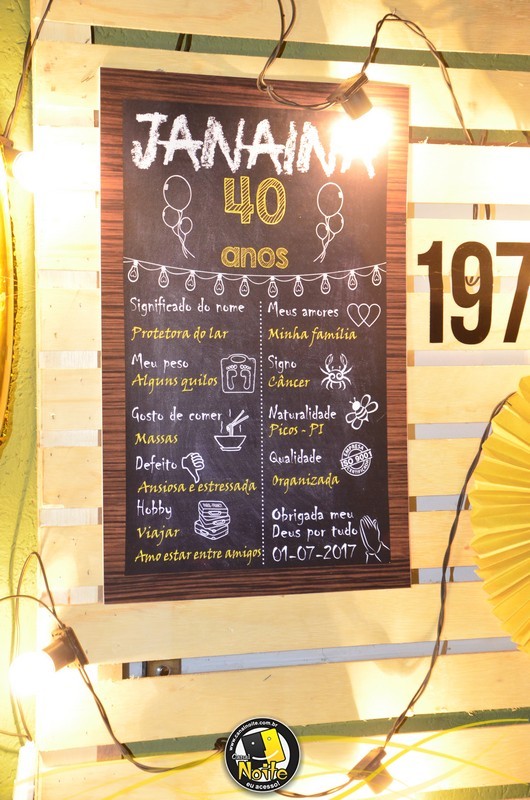 JANAINA
40
anos
Significado do nome
Protetora do lar
Meu peso
Alguns quilos
Gosto de comer
Massas
Defeito
Ansiosa e estressada
Hobby
Viajar
Amo estar entre amigos
Meus amores
Minha família
Signo
Câncer
Naturalidade
Picos - PI
Qualidade
EMPRESA
ISO 9001
Organizada
Obrigada meu
Deus por tudo
01-07-2017
197
www.canalnoite.com.br
Canal
Noite
eu acesso!